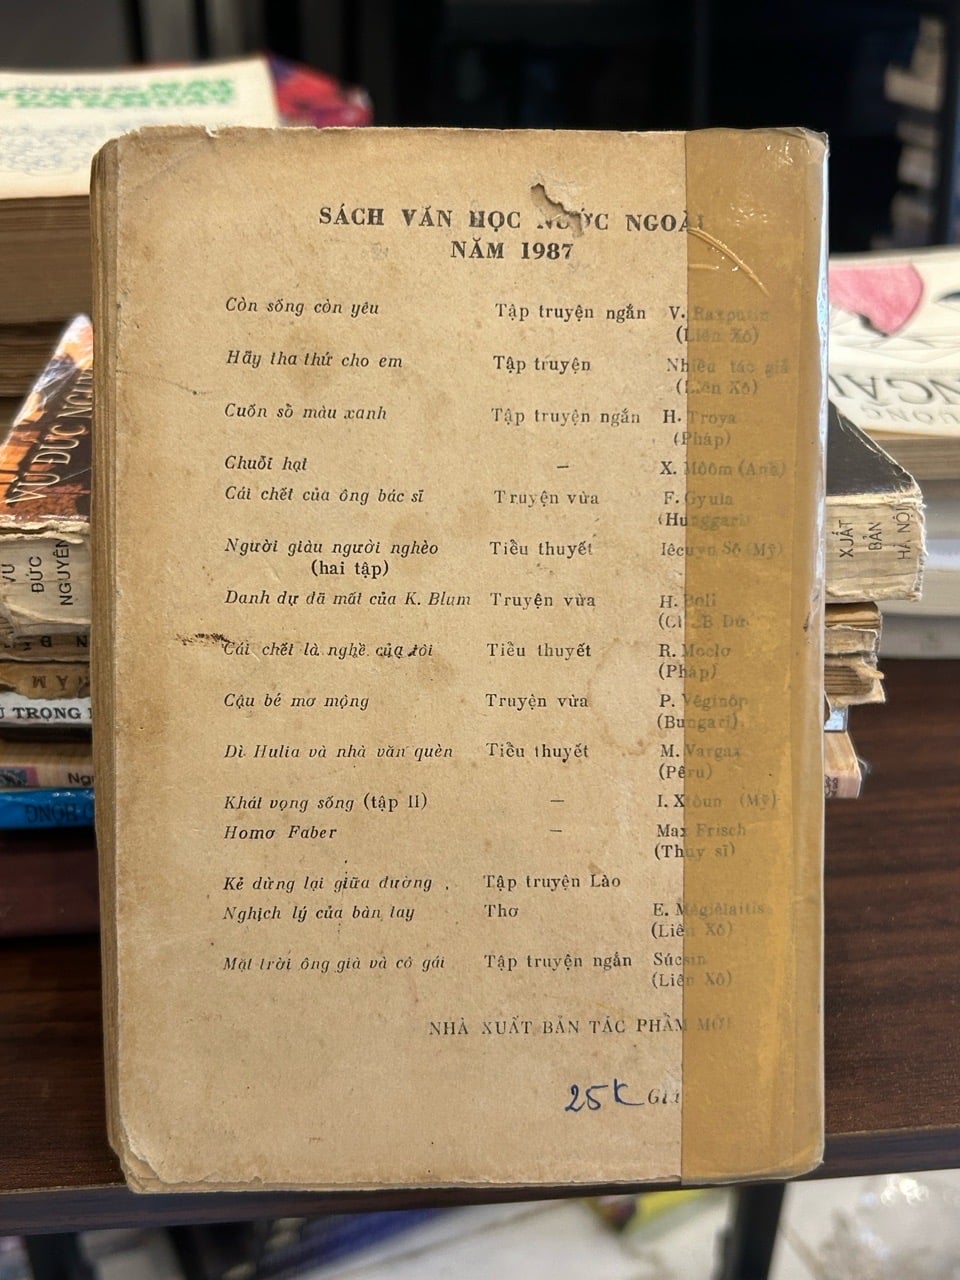 SÁCH VĂN HỌC NƯỚC NGOÀI
NĂM 1987
Còn sống còn yêu Tập truyện ngắn V. Raxputin
(Liên Xô)
Hãy tha thứ cho em Tập truyện Nhiều tác giả
(Liên Xô)
Cuốn sổ màu xanh Tập truyện ngắn H. Troya
(Pháp)
Chuỗi hạt — X. Môôm (Anh)
Cái chết của ông bác sĩ Truyện vừa F. Gyula
(Hunggari)
Người giàu người nghèo Tiểu thuyết Iêcuyn Sô (Mỹ)
(hai tập)
Danh dự đã mất của K. Blum Truyện vừa H. Beli
(CHLB Đức)
Cái chết là nghề của tôi Tiểu thuyết R. Meclơ
(Pháp)
Cậu bé mơ mộng Truyện vừa P. Vêginôp
(Bungari)
Dì Hulia và nhà văn quèn Tiểu thuyết M. Vargax
(Pêru)
Khát vọng sống (tập II) — I. Xtôun (Mỹ)
Homơ Faber — Max Frisch
(Thụy sĩ)
Kẻ dừng lại giữa đường Tập truyện Lào
Nghịch lý của bàn tay Thơ E. Mêgiêlaitis
(Liên Xô)
Mặt trời ông già và cô gái Tập truyện ngắn Súcsin
(Liên Xô)
NHÀ XUẤT BẢN TÁC PHẨM MỚI
25K Giá
VŨ ĐỨC NGUYÊN
VŨ
ĐỨC
NGUYÊN
XUẤT
BẢN
HÀ NỘI
TRỌNG